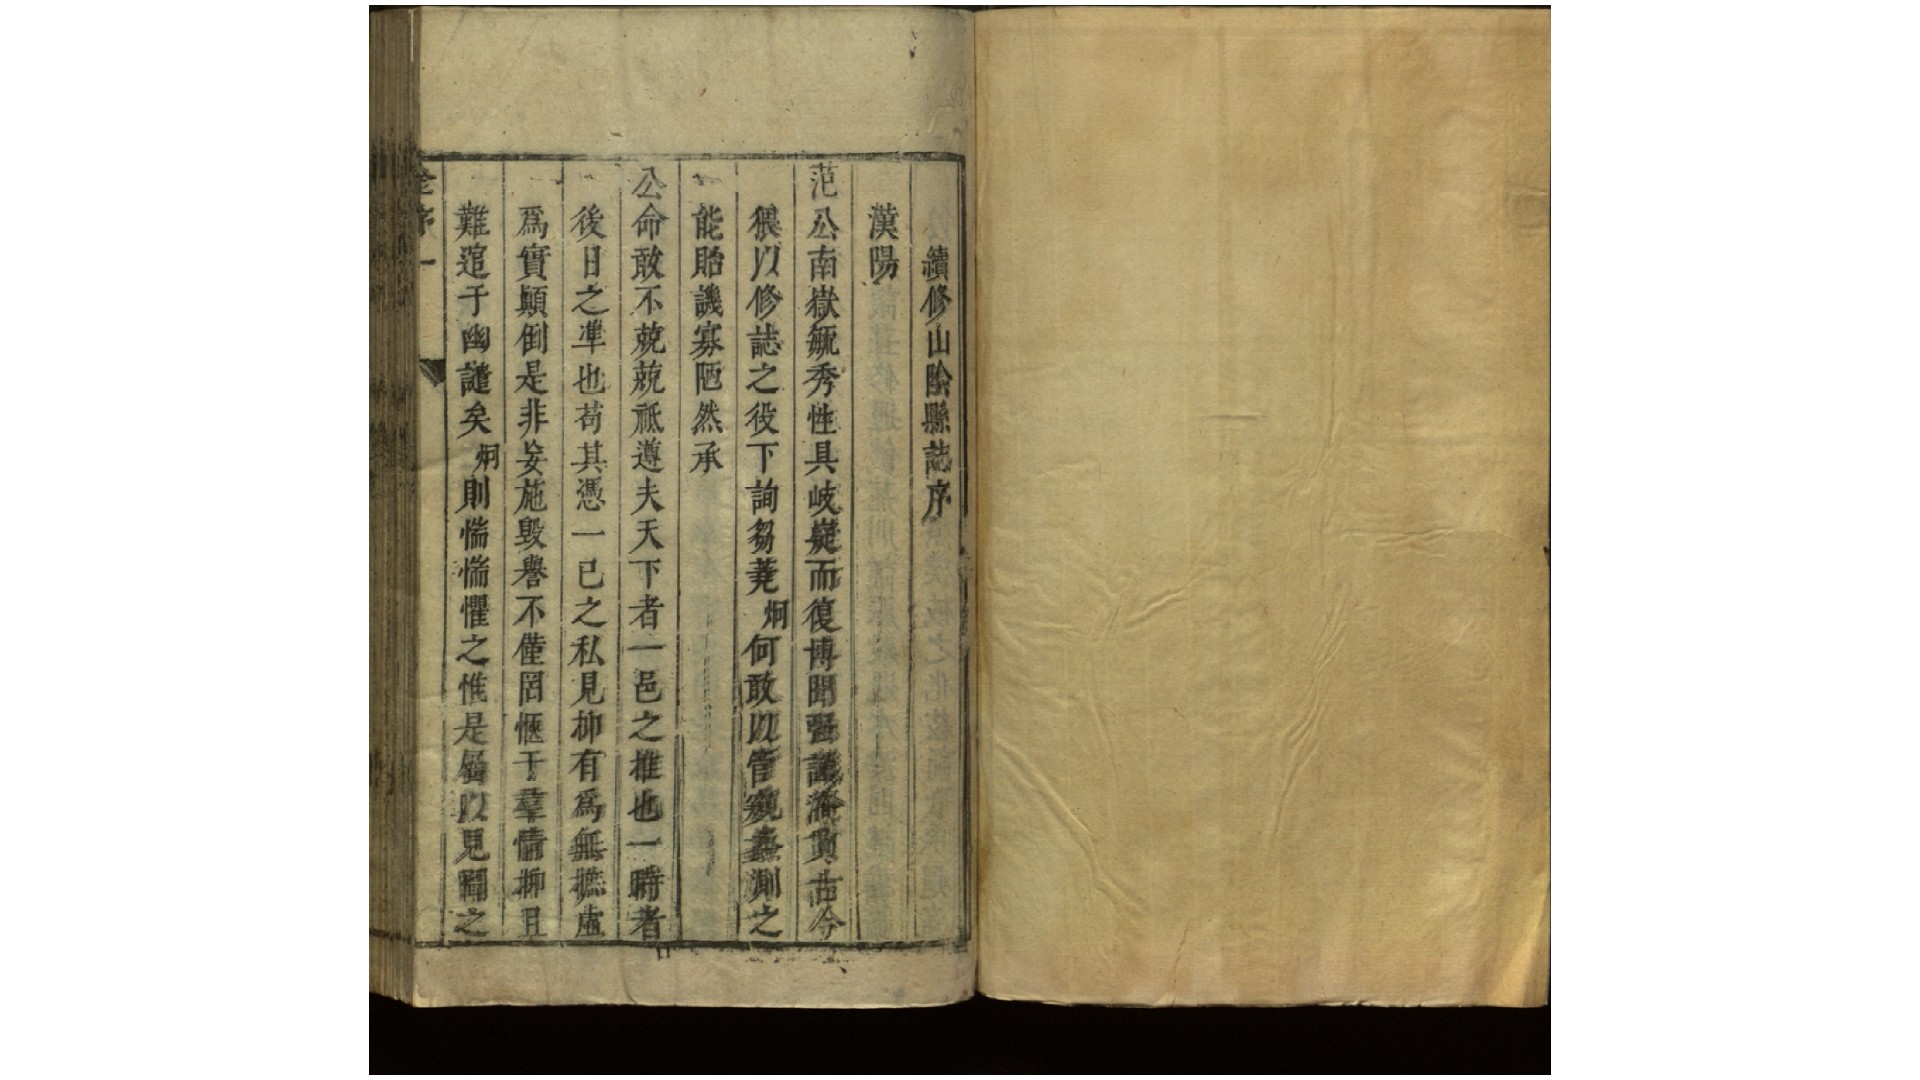 續修山陰縣誌序
漢陽
范公南嶽毓秀性具岐嶷而復博聞强識淹貫古今
猥以修誌之役下詢芻蕘炯何敢以管窺蠡測之
能貽譏寡陋然承
公命敢不兢兢祗遵夫天下者一邑之推也一時者
後日之準也苟其憑一己之私見抑有爲無摭虛
爲實顛倒是非妄施毀譽不僅罔愜于羣情抑且
難逭于幽譴矣炯則惴惴懼之惟是屬以見聞之
序一